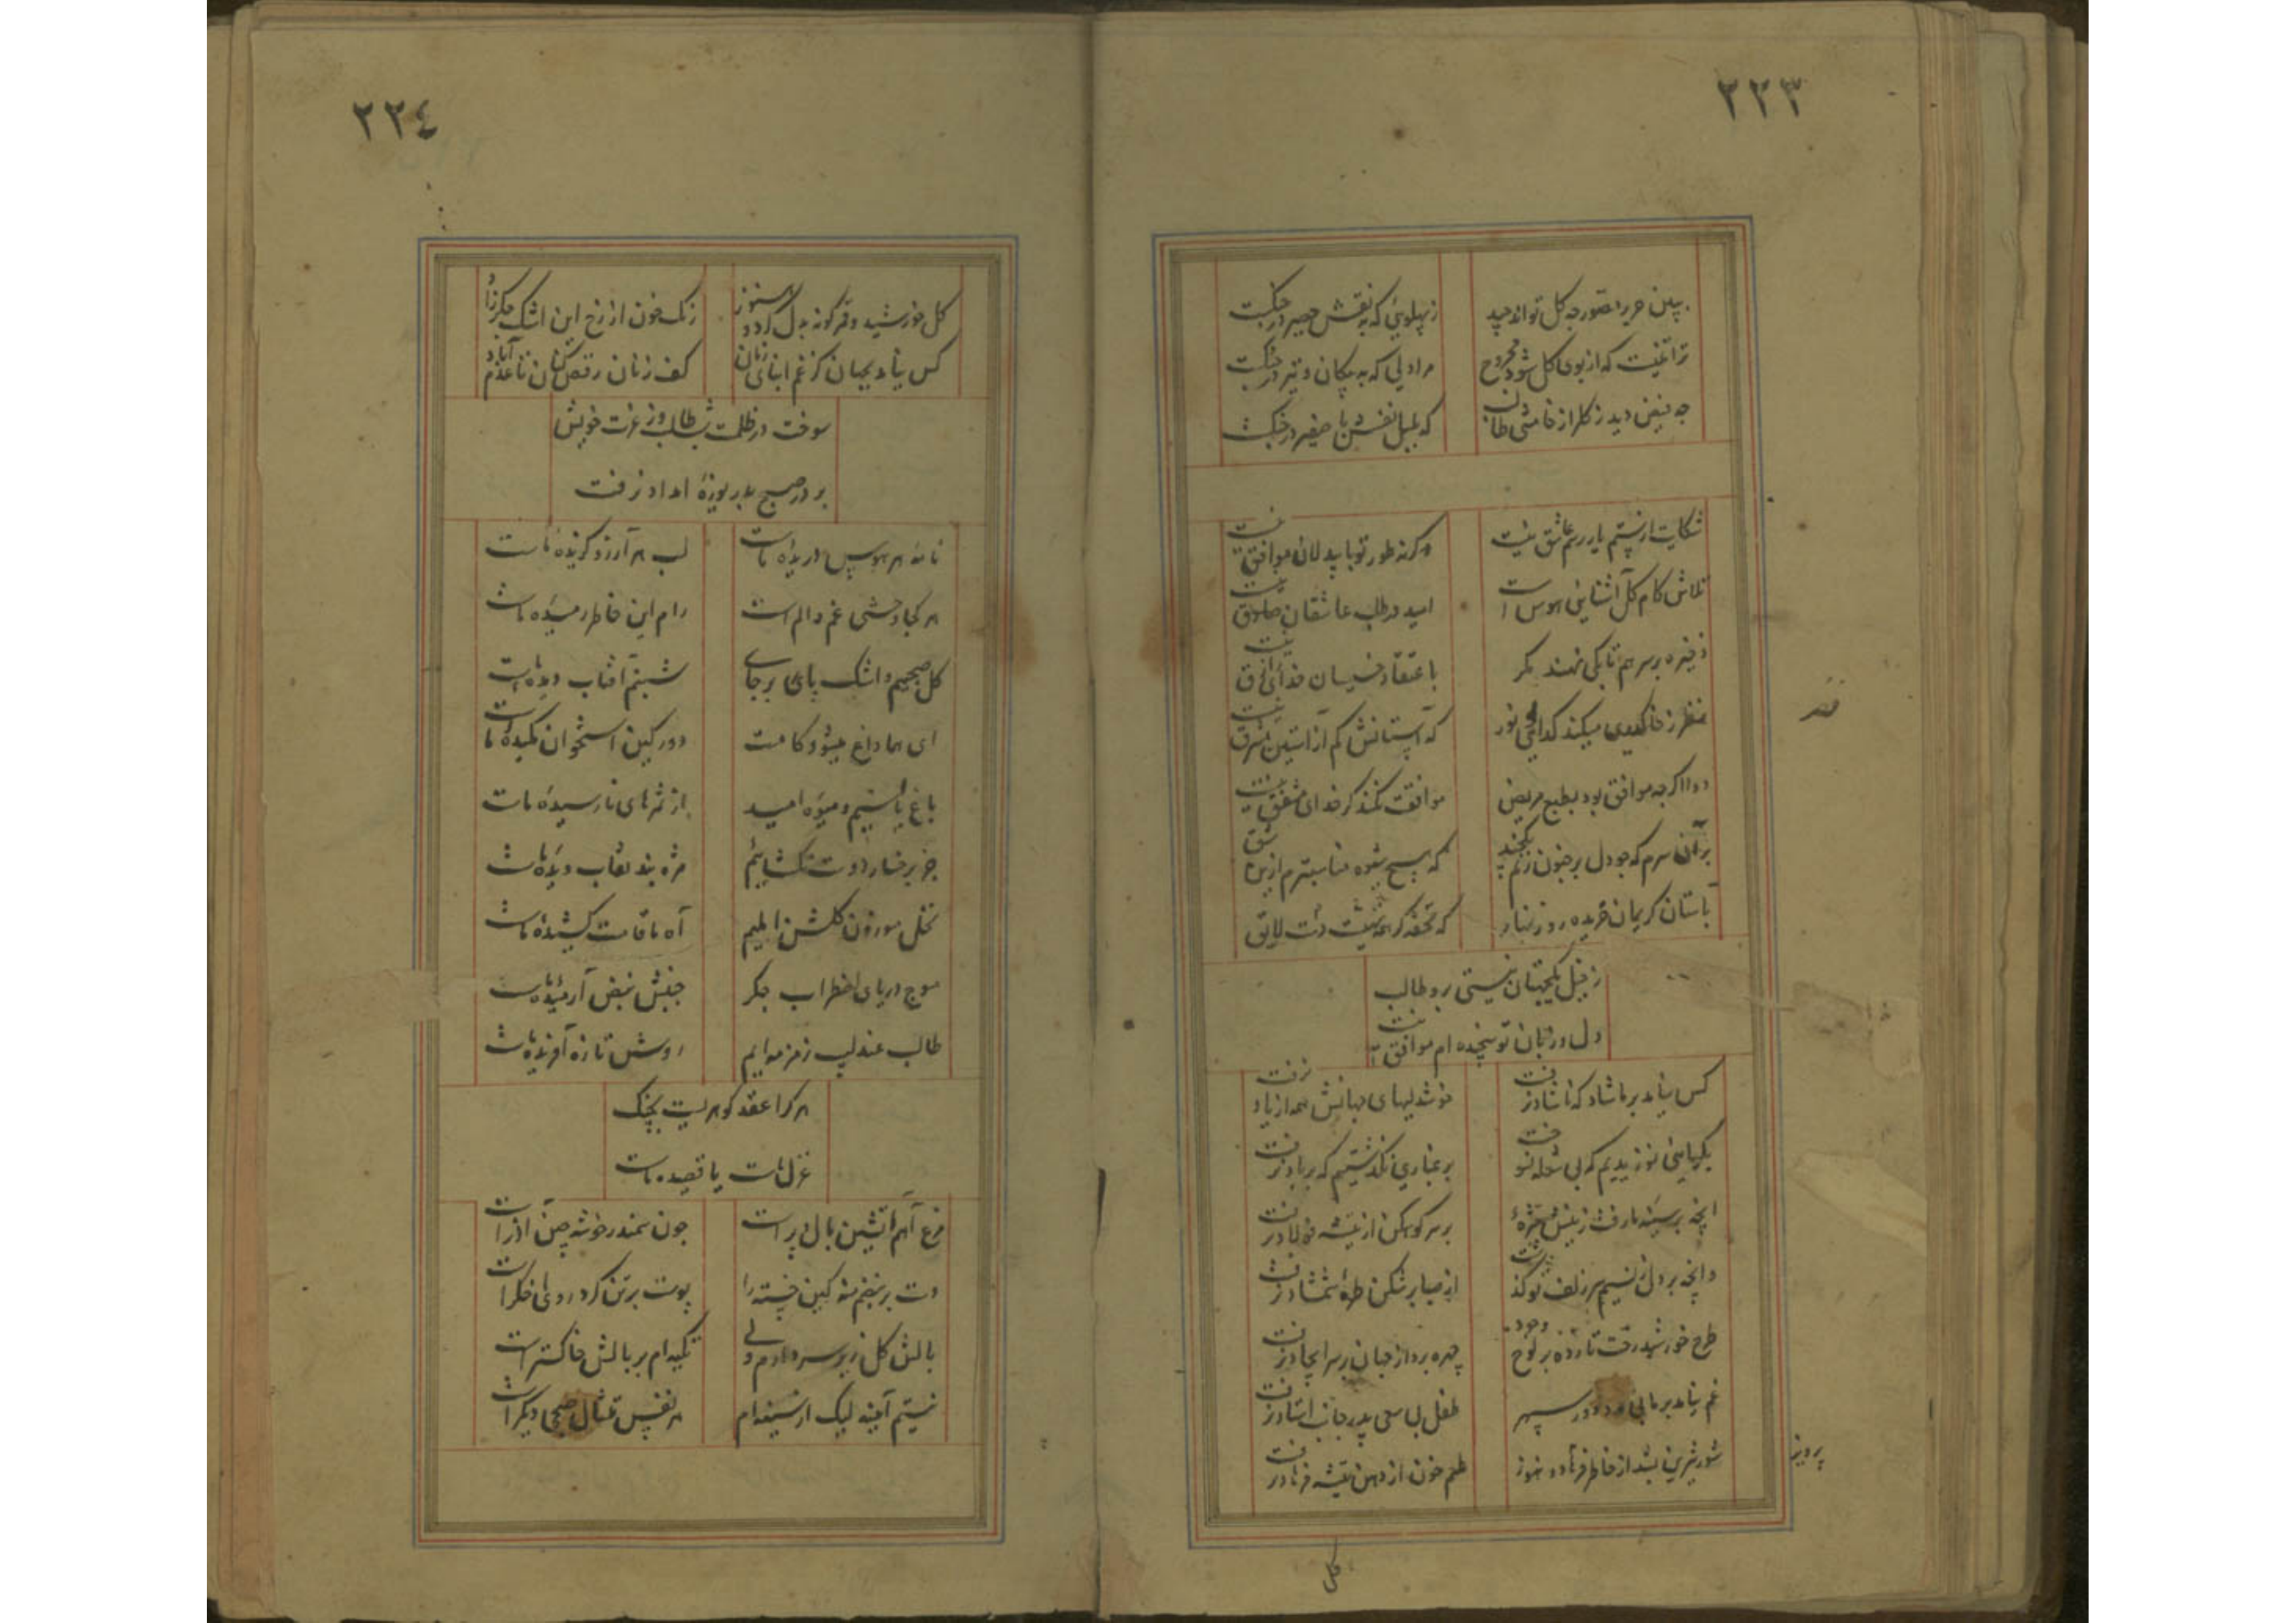 ٢٢٣
ببین حریر تصور چه گل تواند چید
ز پهلوئی که به نقش حصیر در جنگست
ترا تنیست که از بوی گل شود مجروح
مرا دلی که به پیکان و تیر در جنگست
چه فیض دید ز گلزار خامشی طالب
که بلبل نفسش با صفیر در جنگست
شکایت از ستم یار رسم عاشق نیست
وگرنه طور تو با بیدلان موافق نیست
تلاش کام گل آشنایی هوس است
امید در طلب عاشقان صادق نیست
ذخیره بر سر هم تا بکی نهند مگر
باعتقاد خسیسان خدای رازق نیست
که آستانش کم از آستین مشرق نیست
دوا اگرچه موافق بود بطبع مریض
موافقت نکند گر خدای مشفق نیست
بر آن سرم که چو دل بر جنون زنم یکچند
که هیچ شیوه مناسبترم ازین
بآستان کریمان
که تحفه
ز خیل یکجهتان نیستی برو طالب
دل و زبان تو سنجیده‌ام موافق نیست
کس نیامد بر ما شاد که ناشاد نرفت
خوشدلیهای جهانش همه از یاد نرفت
یکیاهی نوزیدیم که بی شعله نسوخت
بر غباری نگذشتیم که بر باد نرفت
آنچه بر سینه ما رفت ز نیش مژه
بر سر کوهکن از تیشه فولاد نرفت
وانچه بر دل ز نسیم سر زلف تو گذشت
از صبا بر شکن طره شمشاد نرفت
طرح خورشید رخت تا زده بر لوح وجود
چهره پرداز جهان بر سر ایجاد نرفت
غم نیامد بر ما
طفل بی سعی پدر جانب استاد نرفت
شور شیرین بشد از خاطر فرهاد و هنوز
طعم خون از دهن تیشه فرهاد نرفت
پرویز
گل
٢٢٤
گل خورشید و قمر گونه بدل کرد و هنوز
رنگ خون از رخ این اشک جگرزاد
کس نیامد بجهان کز غم ابنای زمان
کف زنان رقص کنان تا عدم آباد
سوخت در ظلمت شب طالب و از غیرت خویش
بر در صبح بدریوزه امداد نرفت
نامه هر هوس دریده ماست
لب هر آرزو گزیده ماست
هر کجا وحشی غم و الم است
رام این خاطر رمیده ماست
گل صبحیم و اشک پای برجای
شبنم آفتاب دیده ماست
ای هما داغ میشود کامت
دور کین استخوان مکیده ماست
باغ یاسیم و میوه امید
از ثمرهای نارسیده ماست
جز برخسار دوست نگشاییم
مژه بند نقاب دیده ماست
نخل موزون گلشن المیم
آه ما قامت کشیده ماست
موج دریای اضطراب جگر
جنبش نبض آرمیده ماست
طالب عندلیب زمزمه‌ایم
روش تازه آفریده ماست
هر کرا عقد گوهریست بچنگ
غزل ماست یا قصیده ماست
مرغ آهم آتشین بال و پر است
چون سمندر خوشه چین آذر است
دست بر نبضم منه کین خسته را
پوست بر تن گرد روی اخگر است
بالش گل زیر سر دارم ولی
تکیه‌ام بر بالش خاکستر است
نیستم آیینه لیک از سینه‌ام
هر نفس تمثال صبحی دیگر است